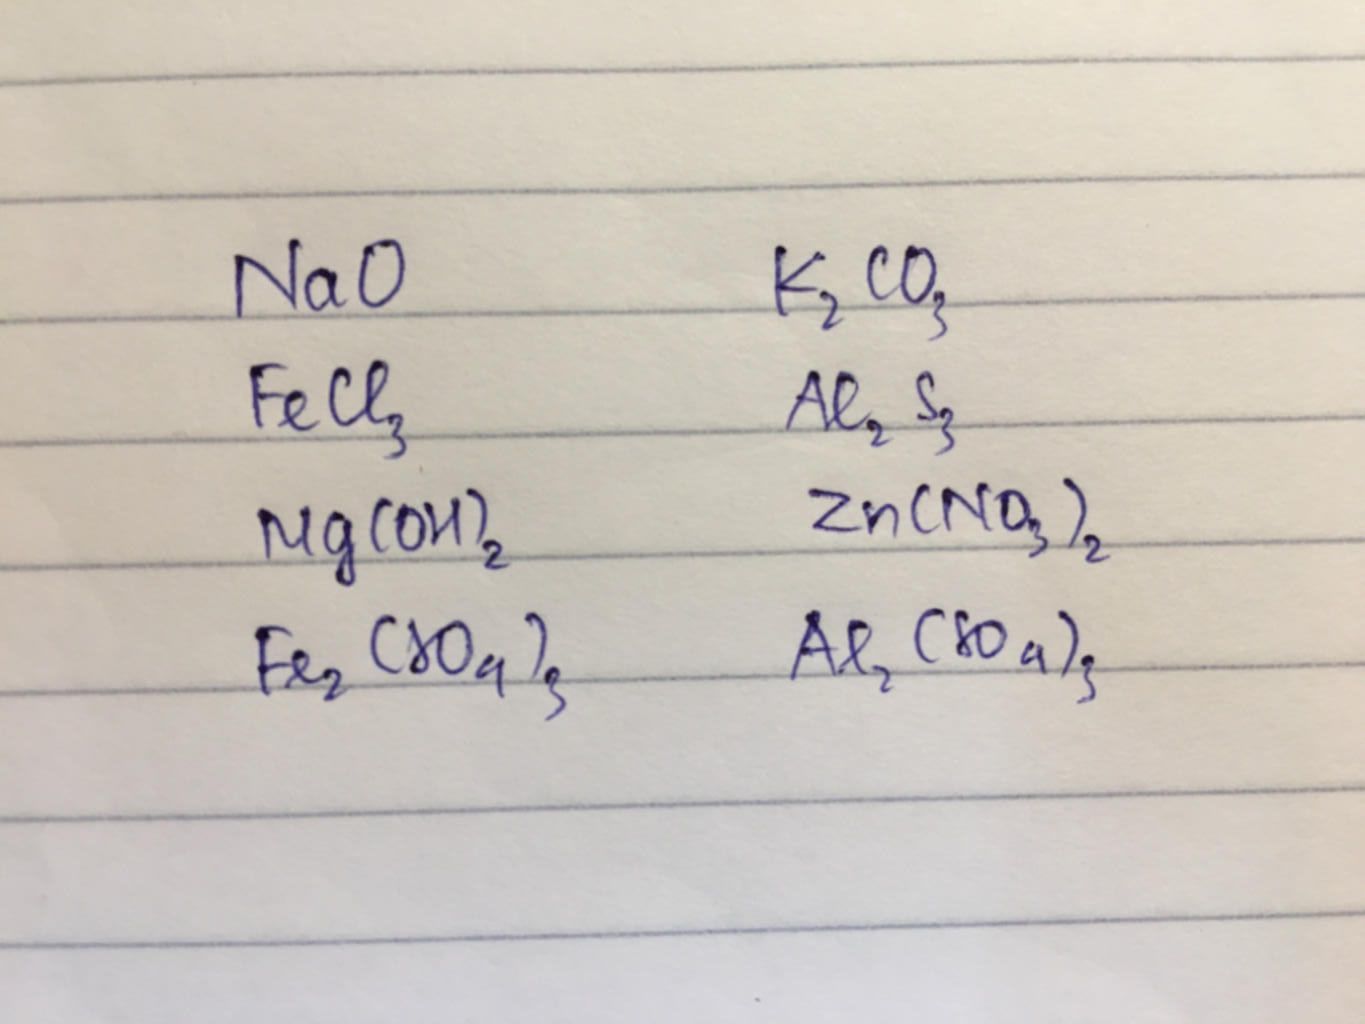 NaO K₂CO₃
FeCl₃ Al₂S₃
Mg(OH)₂ Zn(NO₃)₂
Fe₂(SO₄)₃ Al₂(SO₄)₃